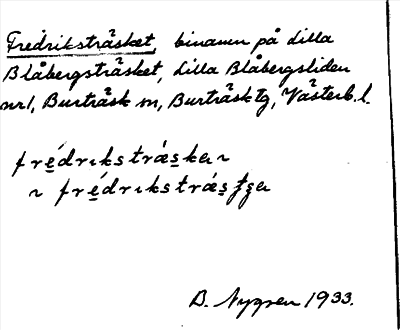 Fredriksträsket, binamn på Lilla
Blåbergsträsket, Lilla Blåbergsliden
nr 1, Burträsk sn, Burträsk tg, Västerb. l.
frédrıkstrǽskeı ~
~ frédrıkstrǽsʃʒa
B. Nygren 1933.